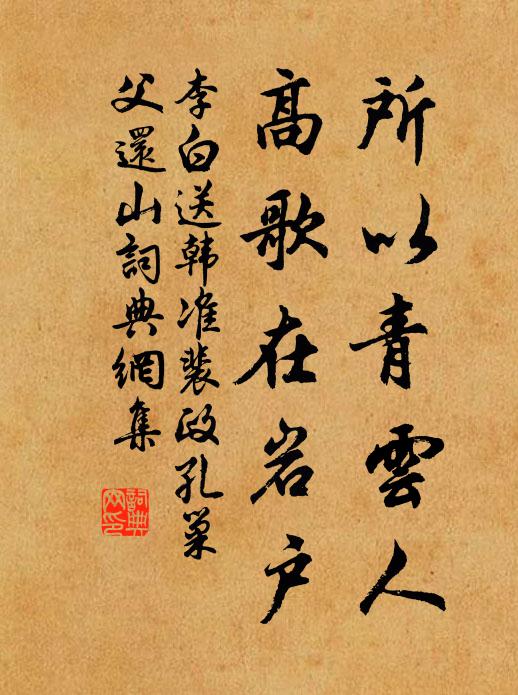 所以青雲人
高歌在岩户
李白送韩准裴政孔巢
父還山詞典網集
詞典
网印